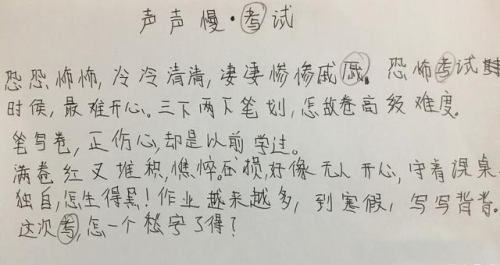 声声慢·考试
恐恐怖怖,冷冷清清,凄凄惨惨戚戚。恐怖考试
时候,最难开心。三下两下笔划,怎敌卷高级难度。
笔写卷,正伤心,却是以前学过。
满卷红叉堆积,憔悴损,好像无人开心,守着课桌
独自,怎生得黑!作业越来越多,到寒假,写写背背。
这次考,怎一个愁字了得?